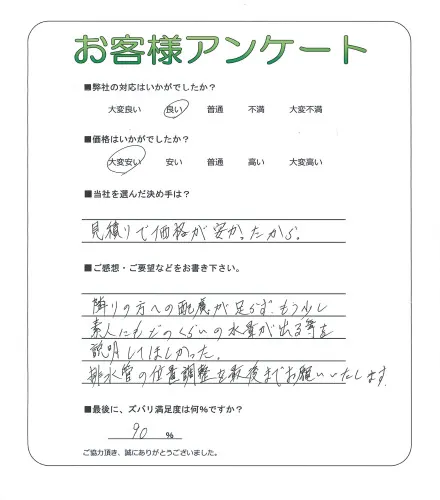 お客様アンケート
■弊社の対応はいかがでしたか？
大変良い 良い 普通 不満 大変不満
■価格はいかがでしたか？
大変安い 安い 普通 高い 大変高い
■当社を選んだ決め手は？
見積りで価格が安かったから。
■ご感想・ご要望などをお書き下さい。
隣りの方への配慮が足らず、もう少し
素人にもどのくらいの水量が出る等を
説明してほしかった。
排水管の位置調整を最後までお願いいたします
■最後に、ズバリ満足度は何%ですか？
90 %
ご協力頂き、誠にありがとうございました。